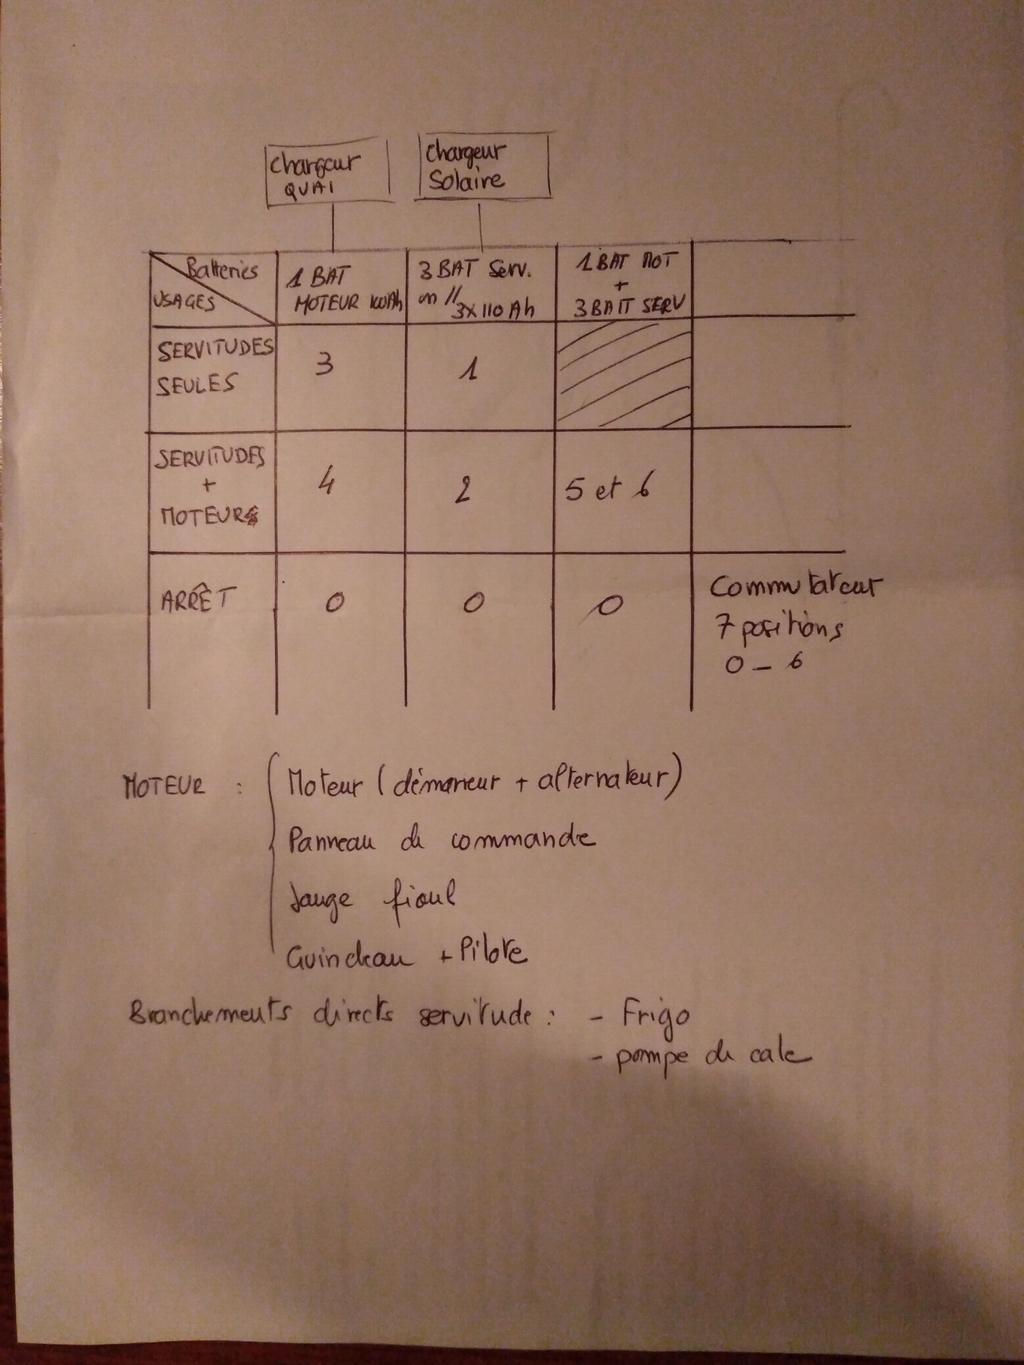 Chargeur
QUAI
Chargeur
Solaire
Batteries
USAGES
1 BAT
MOTEUR 100Ah
3 BAT Serv.
en //
3x110 Ah
1 BAT MOT
+
3 BATT SERV
SERVITUDES
SEULES
3
1
SERVITUDES
+
MOTEUR
4
2
5 et 6
ARRÊT
0
0
0
Commutateur
7 positions
0 – 6
MOTEUR : Moteur (démarreur + alternateur)
Panneau de commande
Jauge fioul
Guindeau + Pilote
Branchements directs servitude : - Frigo
- pompe de cale